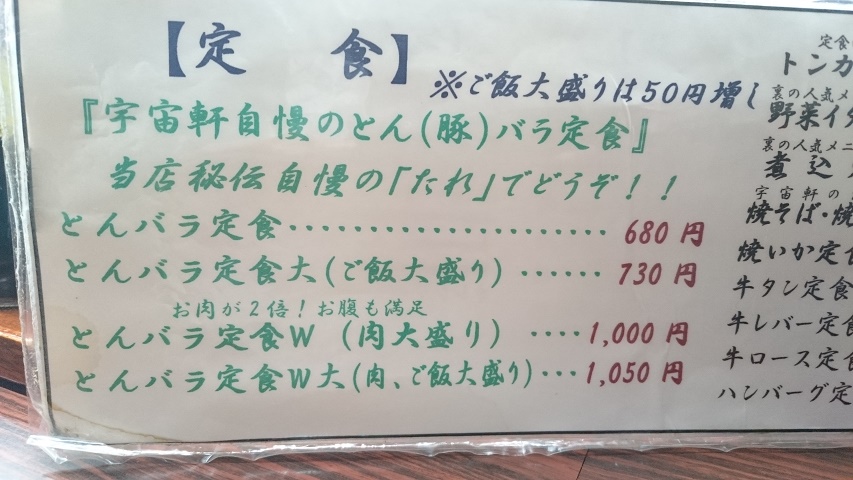 【定 食】
※ご飯大盛りは50円増し
『宇宙軒自慢のとん(豚)バラ定食』
当店秘伝自慢の「たれ」でどうぞ！！
とんバラ定食‥‥‥‥‥‥‥‥‥‥‥‥ 680 円
とんバラ定食大(ご飯大盛り) ‥‥‥ 730 円
お肉が２倍！お腹も満足
とんバラ定食W (肉大盛り) ‥‥1,000 円
とんバラ定食W大(肉、ご飯大盛り)‥･1,050 円
定食
トンカ
裏の人気メニ
野菜イタ
裏の人気メニ
煮込
宇宙軒の
焼そば・焼
焼いか定食
牛タン定食
牛レバー定食
牛ロース定食
ハンバーグ定